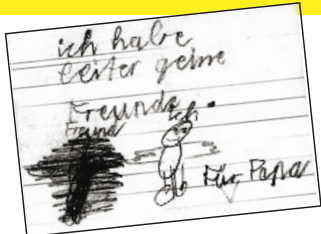 ich habe
leiter geine
Freunde
Freund ich
Für Papa